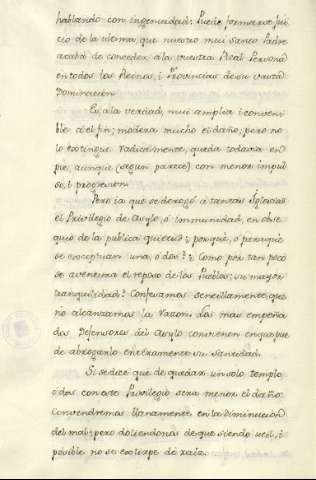 hablando con ingenuidad: Puede formarse jui
cio de la ultima, que nuestro mui Santo Padre
acaba de conceder a la vuestra Real Persona
en todos los Reinos, i Provincias de su vasta
Dominacion.
Es a la verdad, mui amplia i conveni
ble a el fin; modera mucho el daño; pero no
lo extingue radicalmente, queda todavia en
pie, aunque (segun parece) con menor impul
so, i progresion.
Pero ia que se derogó a tantas Iglesias
el Privilegio de Asylo, ó immunidad, en obse
quio de la publica quietud; ¿porquè, ò paraquè
se exceptuan una, ò dos? ¿Como por tan poco
se aventura el reposo de los Pueblos, su mayor
tranquilidad? Confesamos sencillamente, que
no alcanzamos la razon. Los mas empeña
dos Defensores del Asylo convienen en que pue
de abrogarlo enteramente su Santidad.
Si se dice que de quedar un solo templo,
ó dos con este Privilegio sera menor el daño:
Convendremos llanamente en la diminucion
del mal; pero doliendonos de que siendo util, i
posible no se extirpe de raiz.